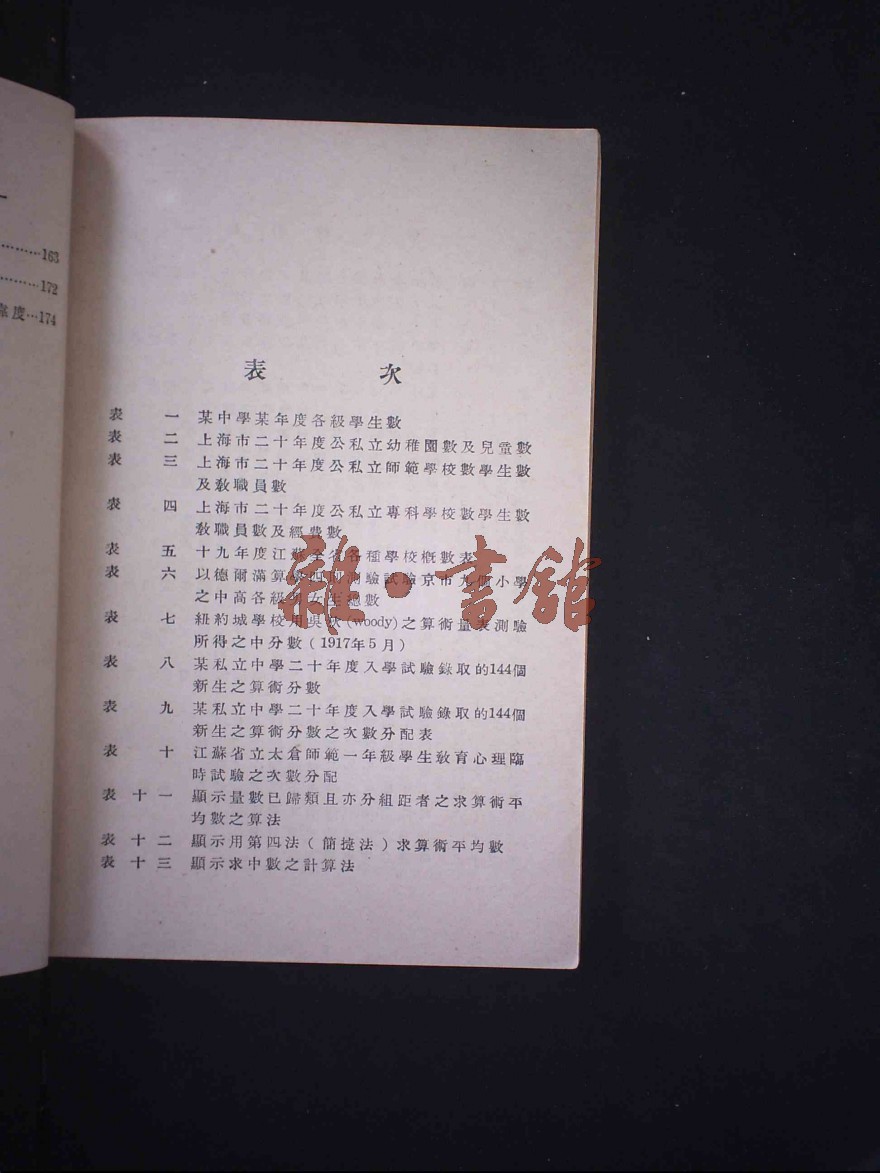 163
172
度…174
表 次
表 一 某中學某年度各級學生數
表 二 上海市二十年度公私立幼稚園數及兒童數
表 三 上海市二十年度公私立師範學校數學生數
及敎職員數
表 四 上海市二十年度公私立專科學校數學生數
敎職員數及經費數
表 五 十九年度江蘇全省各種學校概數表
表 六 以德爾滿算學四則測驗試驗京市九個小學
之中高各級男女生總數
表 七 紐約城學校用吳狄(woody)之算術量表測驗
所得之中分數(1917年5月)
表 八 某私立中學二十年度入學試驗錄取的144個
新生之算術分數
表 九 某私立中學二十年度入學試驗錄取的144個
新生之算術分數之次數分配表
表 十 江蘇省立太倉師範一年級學生敎育心理臨
時試驗之次數分配
表 十一 顯示量數已歸類且亦分組距者之求算術平
均數之算法
表 十二 顯示用第四法(簡捷法)求算術平均數
表 十三 顯示求中數之計算法
雜·書館